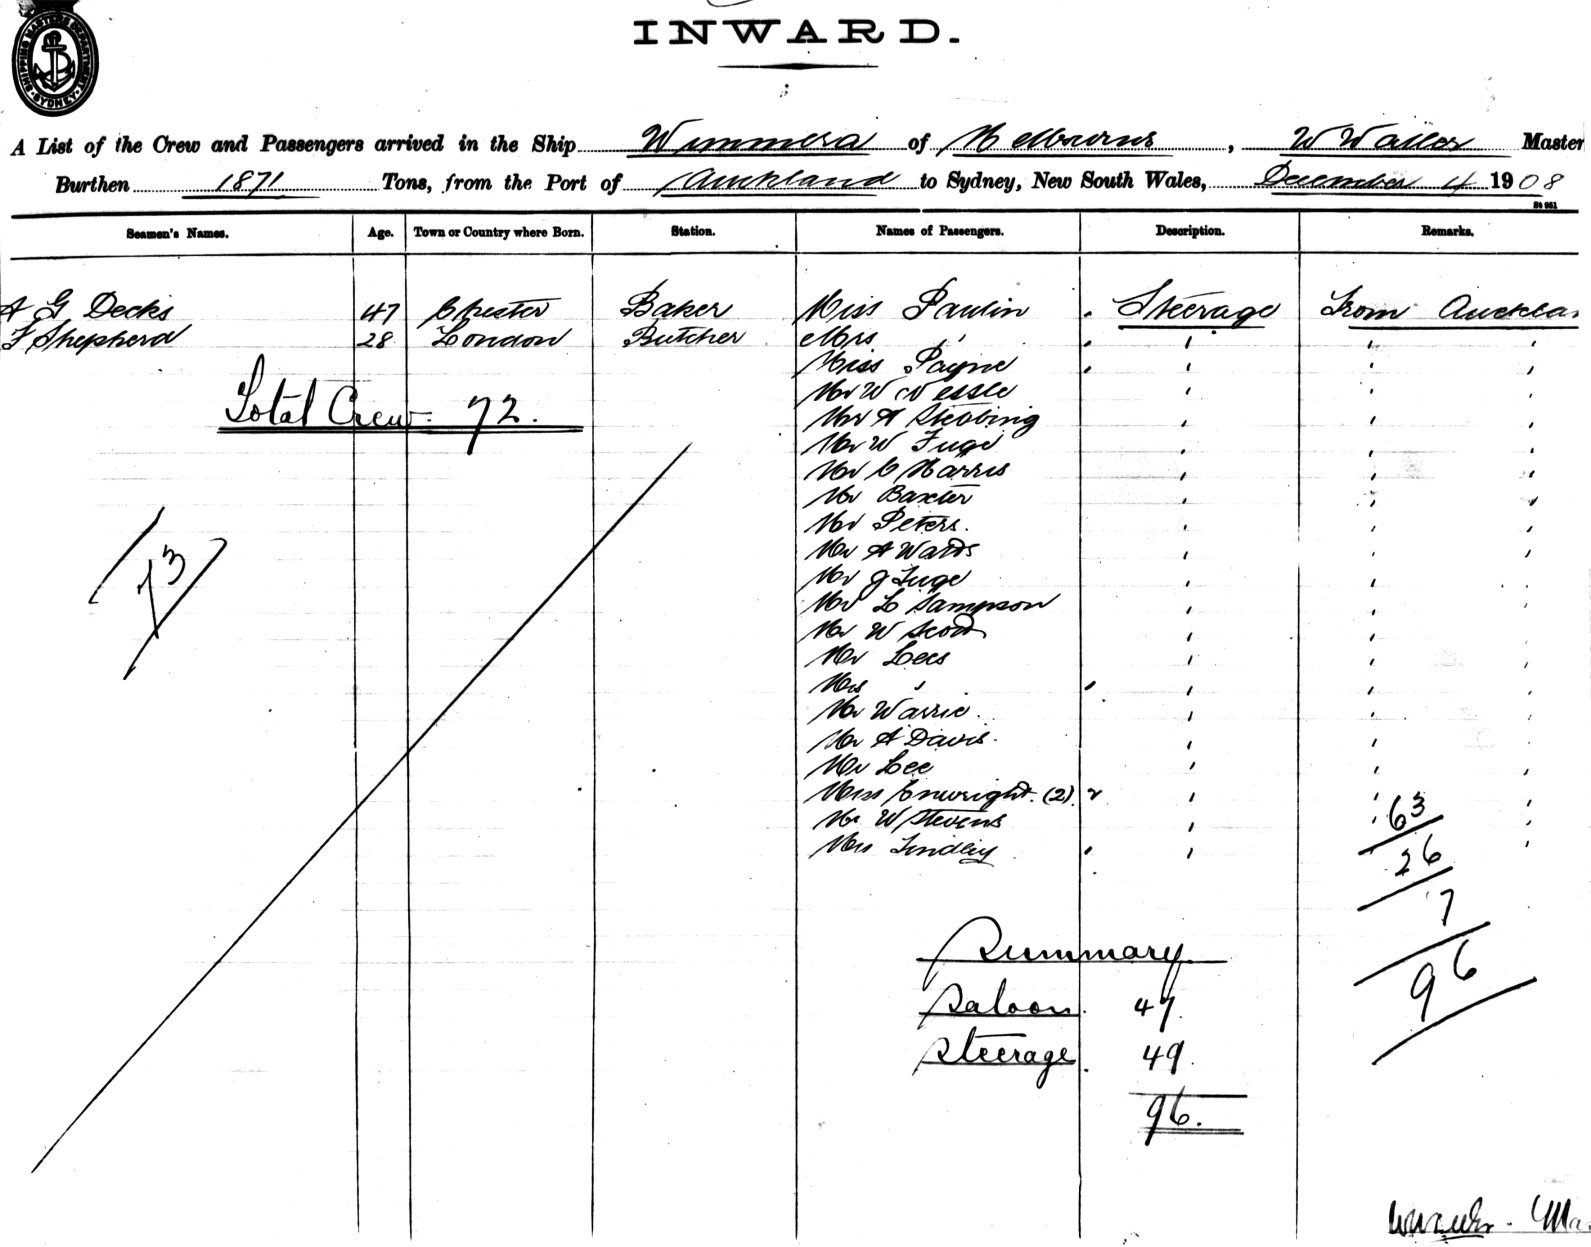 SHIPPING MASTER'S DEPARTMENT SYDNEY
INWARD.
A List of the Crew and Passengers arrived in the Ship Wimmera of Melbourne, W Waller Master
Burthen 1871 Tons, from the Port of Auckland to Sydney, New South Wales, December 4 1908
St 961
Seamen's Names. Age. Town or Country where Born. Station. Names of Passengers. Description. Remarks.
A G Decks 47 Chester Baker Miss Paulin Steerage From Aucklan
F Shepherd 28 London Butcher Mrs " " " "
Miss Payne " " "
Mr W Nessle " " "
Total Crew 72. Mr A Stebbing " " "
Mr W Fuge " " "
Mr C Harris " " "
Mr Baxter " " "
Mr Peters. " " "
73 Mr A Watts " " "
Mr J Fuge " " "
Mr L Sampson " " "
Mr W Scott " " "
Mr Lees " " "
Mrs " " " "
Mr Warric. " " "
Mr A Davis. " " "
Mr Lee " " "
Miss Enwright. (2) " " "
Mr W Stevens " " "
Mrs Lindley " " "
63
26
7
96
Summary
Saloon. 47.
Steerage. 49.
96.